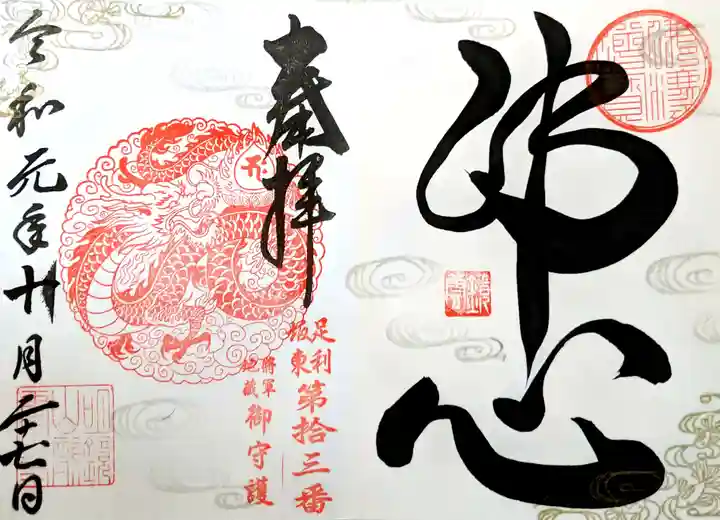 佛心
奉拝
足利
坂東
第拾三番
將軍
地蔵
御守護
令和元年十月二十七日